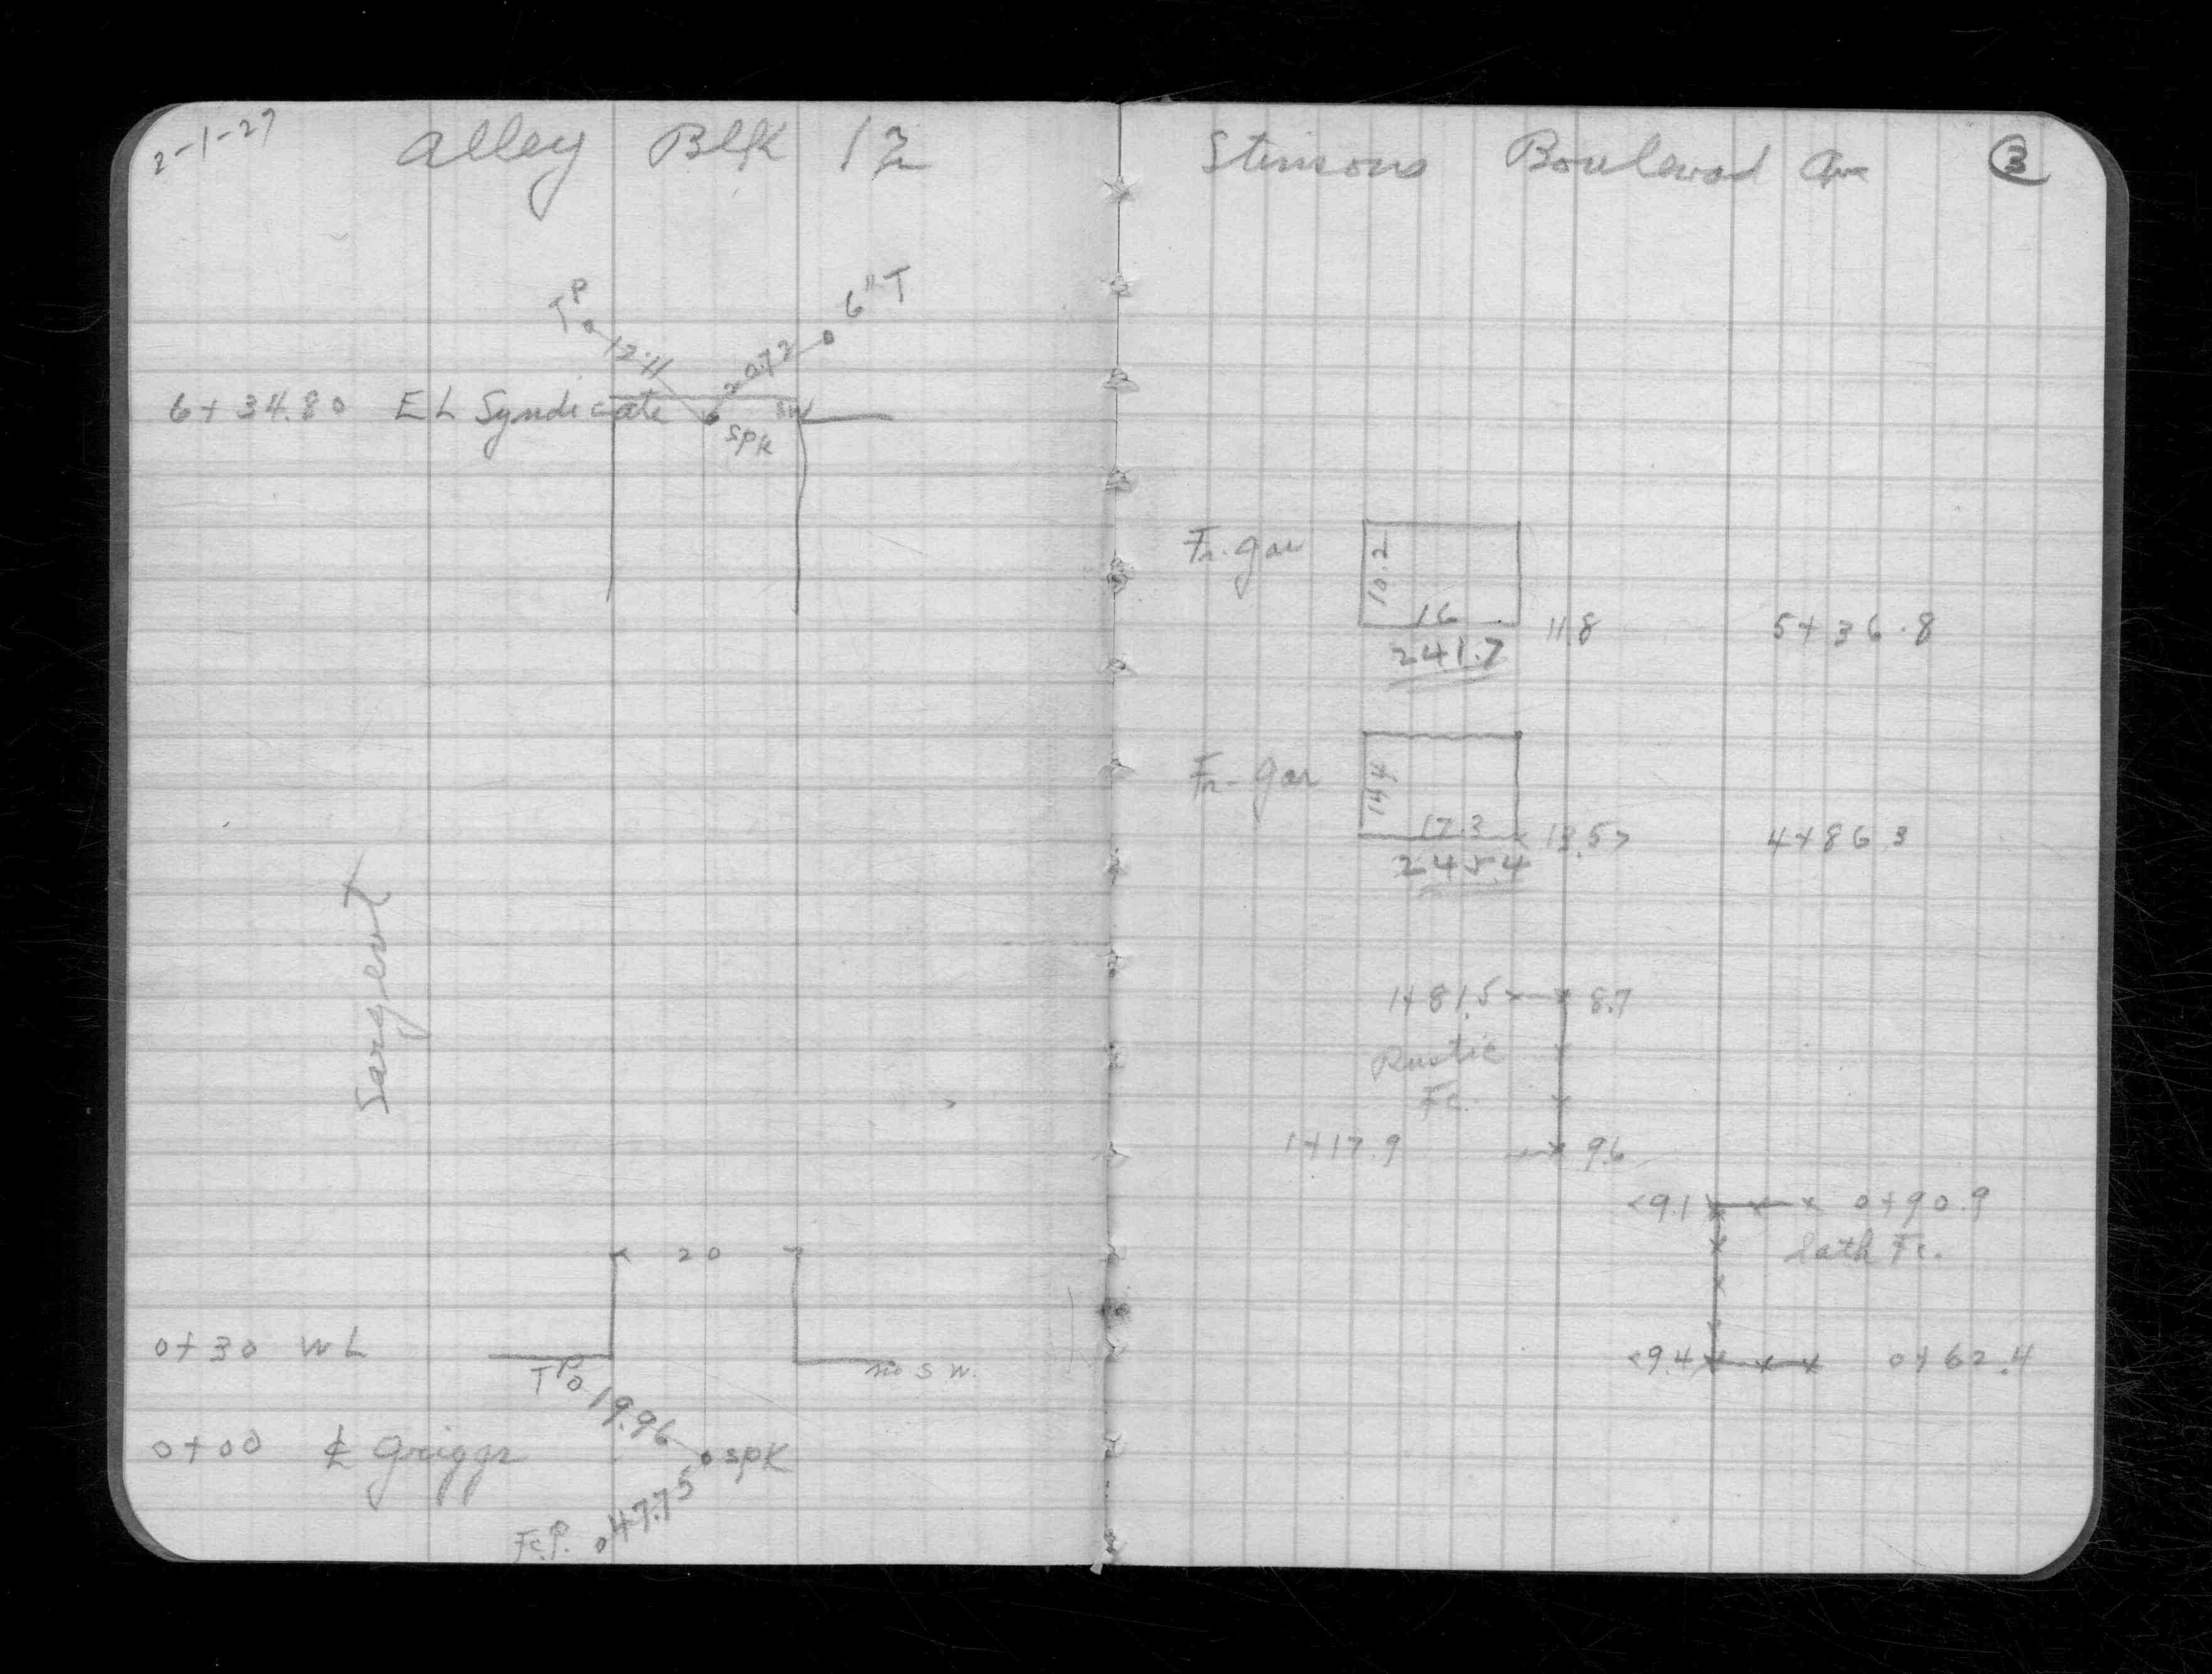 2-1-27
Alley Blk 12
TP
6" T
12.11
20.72
6+34.80 EL Syndicate
SW
SPK
Sargent
20
0+30 WL
TP
no S W.
19.96
0+00 ℄ Griggs
SPK
47.75
Fc.P.
Stinsons Boulevard Ave
3
Fr. gar
10.2
16
11.8
5+36.8
241.7
Fr. gar
14.4
17.3
13.5
4+86.3
245.4
1+81.5
8.7
Rustic
Fc.
1+17.9
9.6
<9.1
0+90.9
Lath Fc.
<9.4
0+62.4